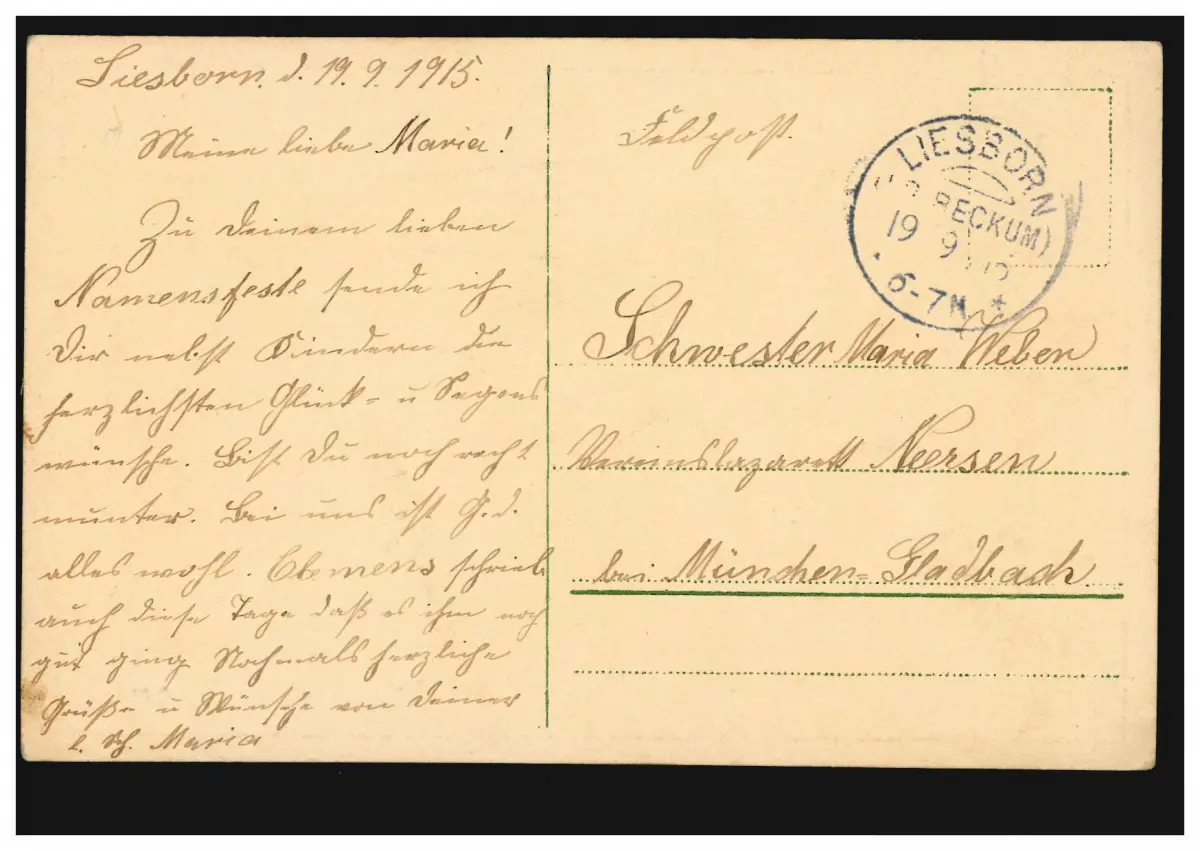 Liesborn, d. 19.9.1915.
Meine liebe Maria!
Zu Deinem lieben
Namensfeste sende ich
Dir nebst Kindern die
herzlichsten Glück- u Segens
wünsche. Bist Du noch recht
munter. Bei uns ist G. d.
alles wohl. Clemens schrieb
auch diese Tage daß es ihm noch
gut ging Nochmals herzliche
Grüße u Wünsche von Deiner
l. Sch. Maria
Feldpost.
LIESBORN
BECKUM)
19 9
6-7N
*
Schwester Maria Weber
Vereinslazarett Neersen
bei München=Gladbach